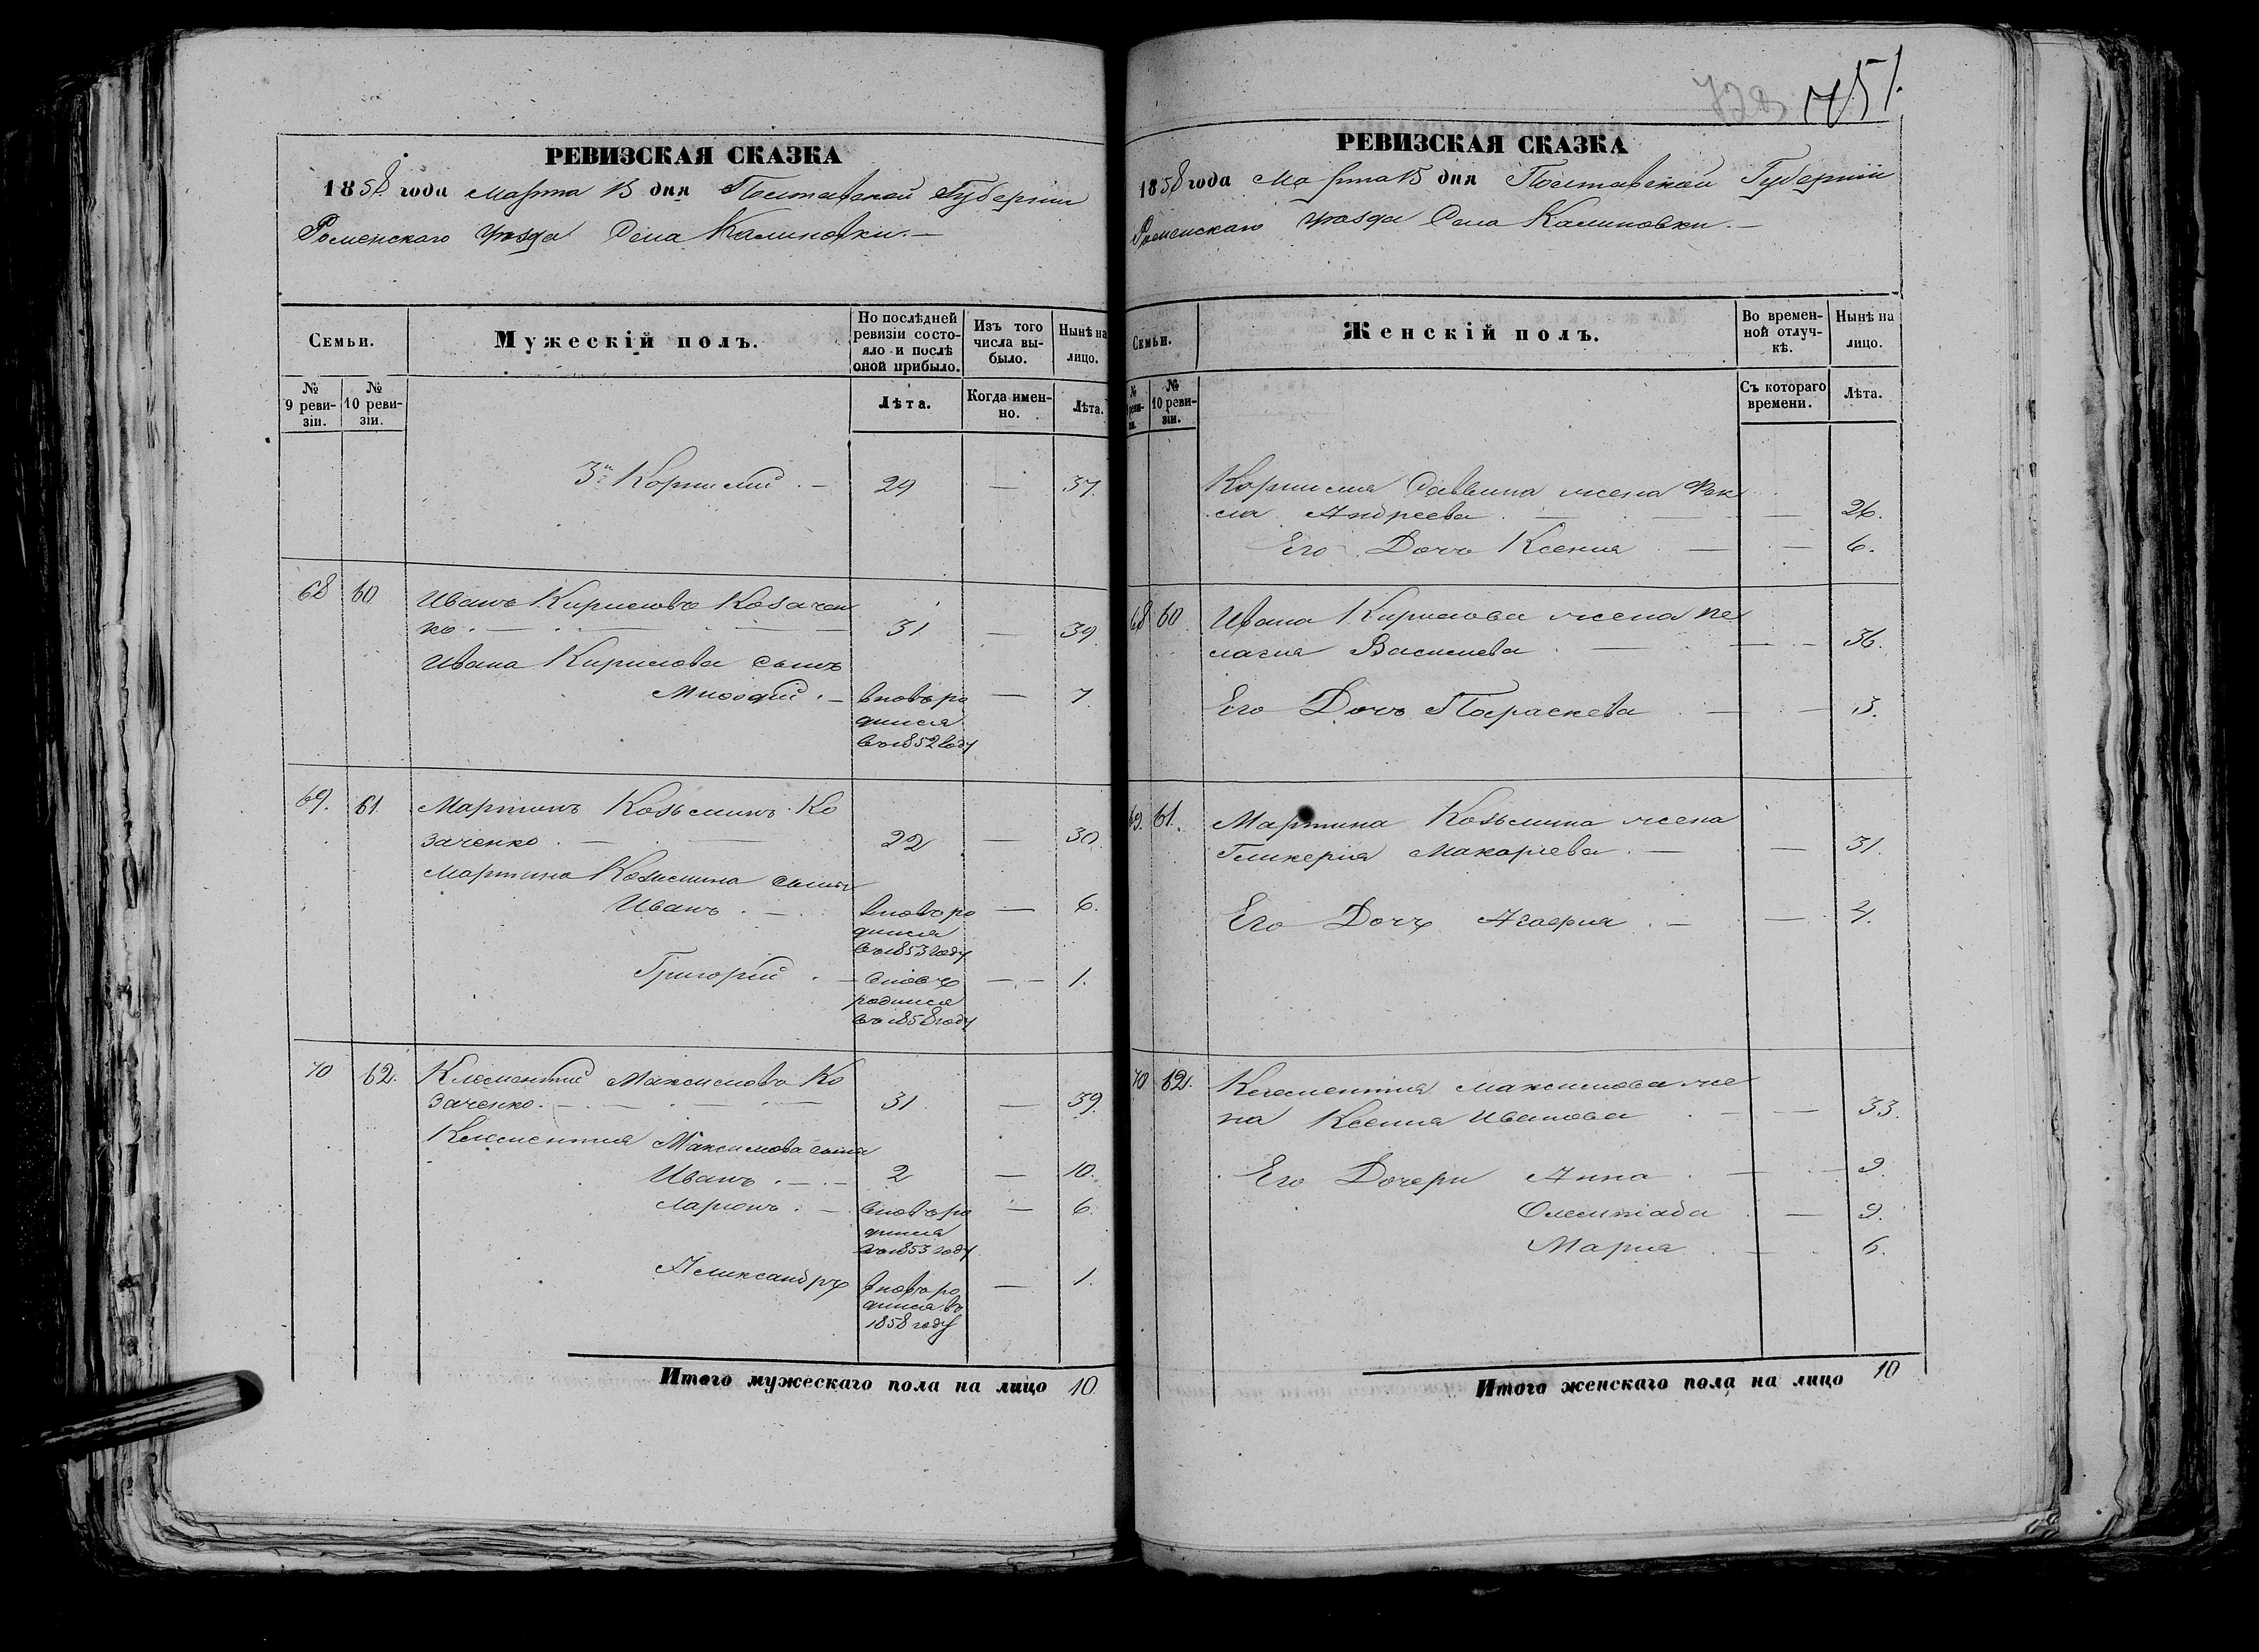 751.
РЕВИЗСКАЯ СКАЗКА
1858 года Марта 15 дня Полтавской Губернии
Роменскаго Уѣзда Села Калиновки. —
Семьи.
Мужескій полъ.
По послѣдней ревизіи состояло и послѣ оной прибыло.
Изъ того числа выбыло.
Нынѣ на лицо.
№ 9 ревизіи.
№ 10 ревизіи.
Лѣта.
Когда именно.
Лѣта.
3й Корнилий . — 29 — 37.
68 60 Иванъ Кириловъ Козачен
ко . — 31 — 39.
Ивана Кирилова сынъ
Мифодий . — вновь ро — 7.
дился
въ 1852 году
69. 61 Мартинъ Козьминъ Ко
заченко . — 22 — 30.
Мартина Козьмина сыны
Иванъ . — вновь ро — 6.
дился
въ 1853 году
Григорий . — вновь — 1.
родился
въ 1858 году
70 62. Клементий Максимовъ Ко
заченко . — 31 — 39.
Клементия Максимова сыны
Иванъ . — 2 — 10.
Ларионъ . — вновь ро — 6.
дился
въ 1853 году
Александръ вновь ро — 1.
дился въ
1858 году
Итого мужескаго пола на лицо 10
РЕВИЗСКАЯ СКАЗКА
1858 года Марта 15 дня Полтавской Губернии
Роменскаго Уѣзда Села Калиновки. —
Семьи.
Женскій полъ.
Во временной отлучкѣ.
Нынѣ на лицо.
№ 10 ревизіи.
Съ котораго времени.
Лѣта.
Корнилия Саввина жена Фек
ла Андреева . — 26.
Его Дочь Ксения . — 6.
68 60 Ивана Кирилова жена Пе
лагия Василиева . — 36.
Его Дочь Параскева . — 3.
69. 61. Мартина Козьмина жена
Гликерия Макариева . — 31.
Его Дочь Агафия . — 4.
70 62. Клементия Максимова же
на Ксения Иванова . — 33.
Его Дочери Анна . — 9.
Олимпиада . — 9.
Мария . — 6.
Итого женскаго пола на лицо 10